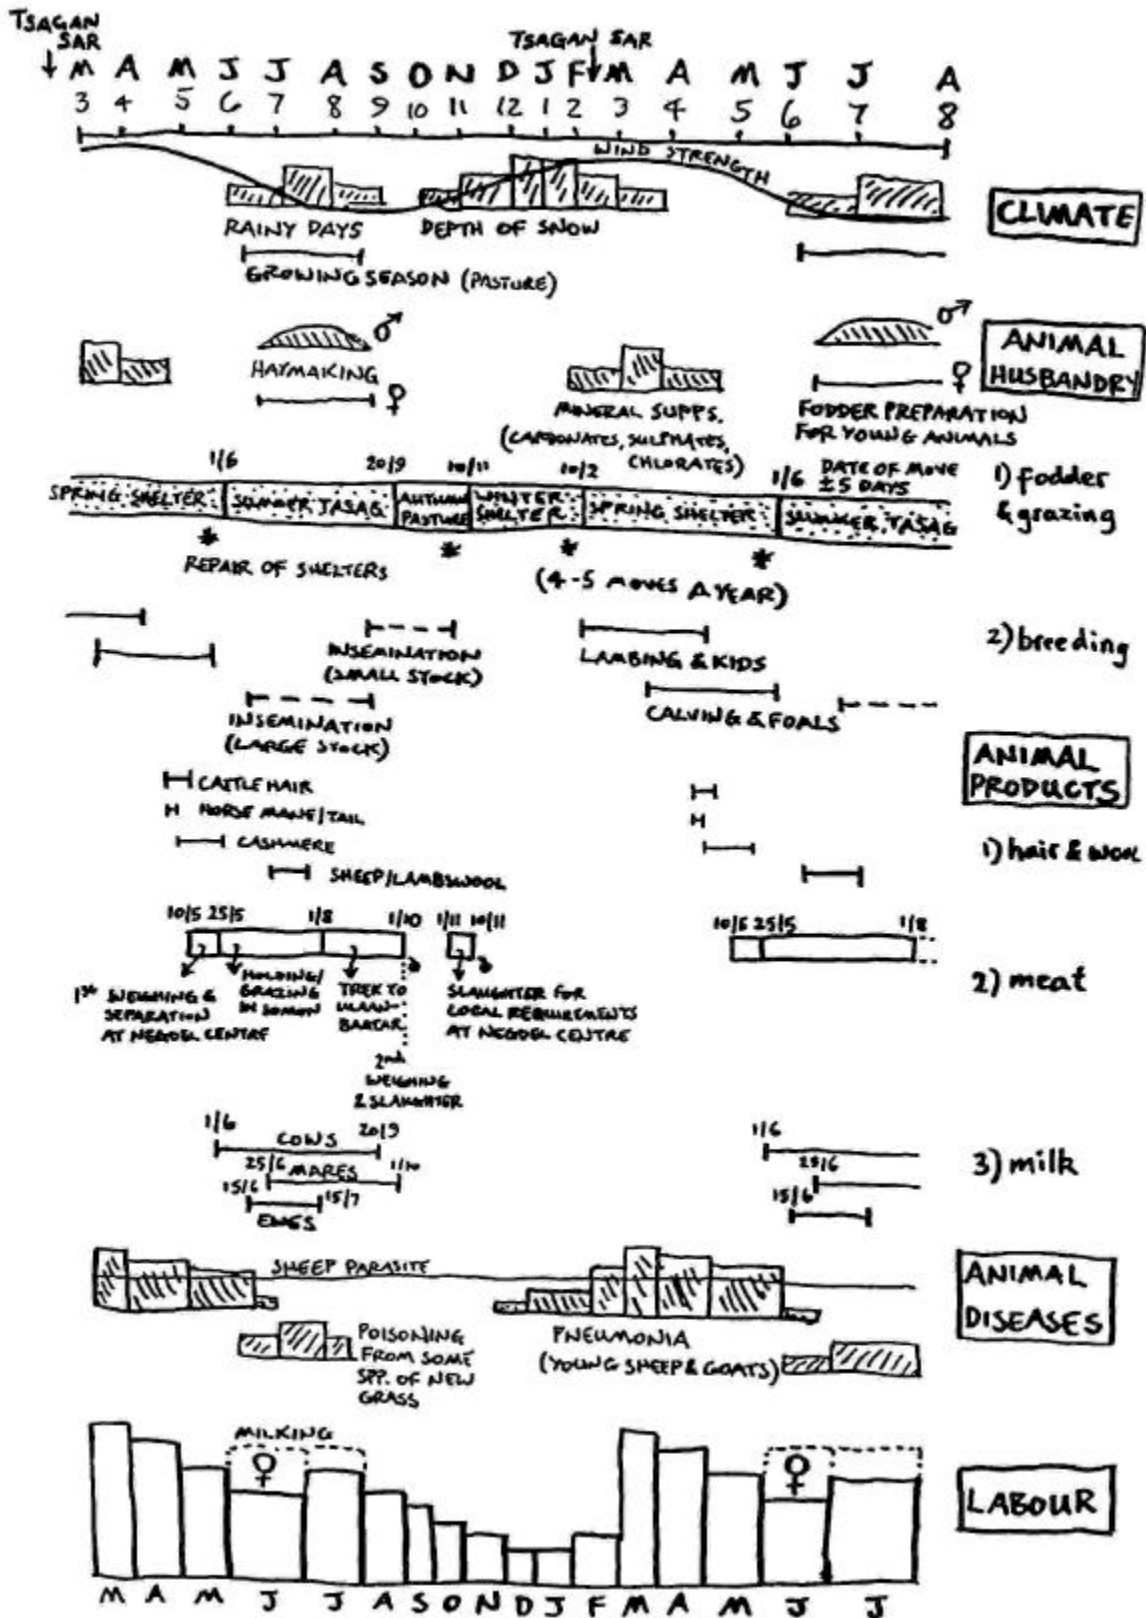 TSAGAN SAR
TSAGAN SAR
M A M J J A S O N D J F M A M J J A
3 4 5 6 7 8 9 10 11 12 1 2 3 4 5 6 7 8
WIND STRENGTH
CLIMATE
RAINY DAYS
DEPTH OF SNOW
GROWING SEASON (PASTURE)
♂
♂
ANIMAL HUSBANDRY
HAYMAKING
♀
♀
MINERAL SUPPS.
(CARBONATES, SULPHATES,
CHLORATES)
FODDER PREPARATION
FOR YOUNG ANIMALS
1/6 20/9 10/11 10/2 1/6
DATE OF MOVE
±5 DAYS
1) fodder
& grazing
SPRING SHELTER
SUMMER TASAG
AUTUMN PASTURE
WINTER SHELTER
SPRING SHELTER
SUMMER TASAG
* * * *
REPAIR OF SHELTERS
(4-5 MOVES A YEAR)
2) breeding
INSEMINATION
(SMALL STOCK)
LAMBING & KIDS
INSEMINATION
(LARGE STOCK)
CALVING & FOALS
ANIMAL
PRODUCTS
CATTLE HAIR
HORSE MANE/TAIL
CASHMERE
1) hair & wool
SHEEP/LAMBSWOOL
10/5 25/5 1/8 1/10 1/11 10/11 10/5 25/5 1/8
2) meat
1st WEIGHING &
SEPARATION
AT NEGDEL CENTRE
HOLDING/
GRAZING
IN SOMON
TREK TO
ULAAN-
BAATAR
SLAUGHTER FOR
LOCAL REQUIREMENTS
AT NEGDEL CENTRE
2nd
WEIGHING
& SLAUGHTER
3) milk
1/6 COWS 20/9 1/6
25/6 MARES 1/10 25/6
15/6 15/7 15/6
EWES
ANIMAL
DISEASES
SHEEP PARASITE
POISONING
FROM SOME
SPP. OF NEW
GRASS
PNEUMONIA
(YOUNG SHEEP & GOATS)
MILKING
♀
♀
LABOUR
M A M J J A S O N D J F M A M J J